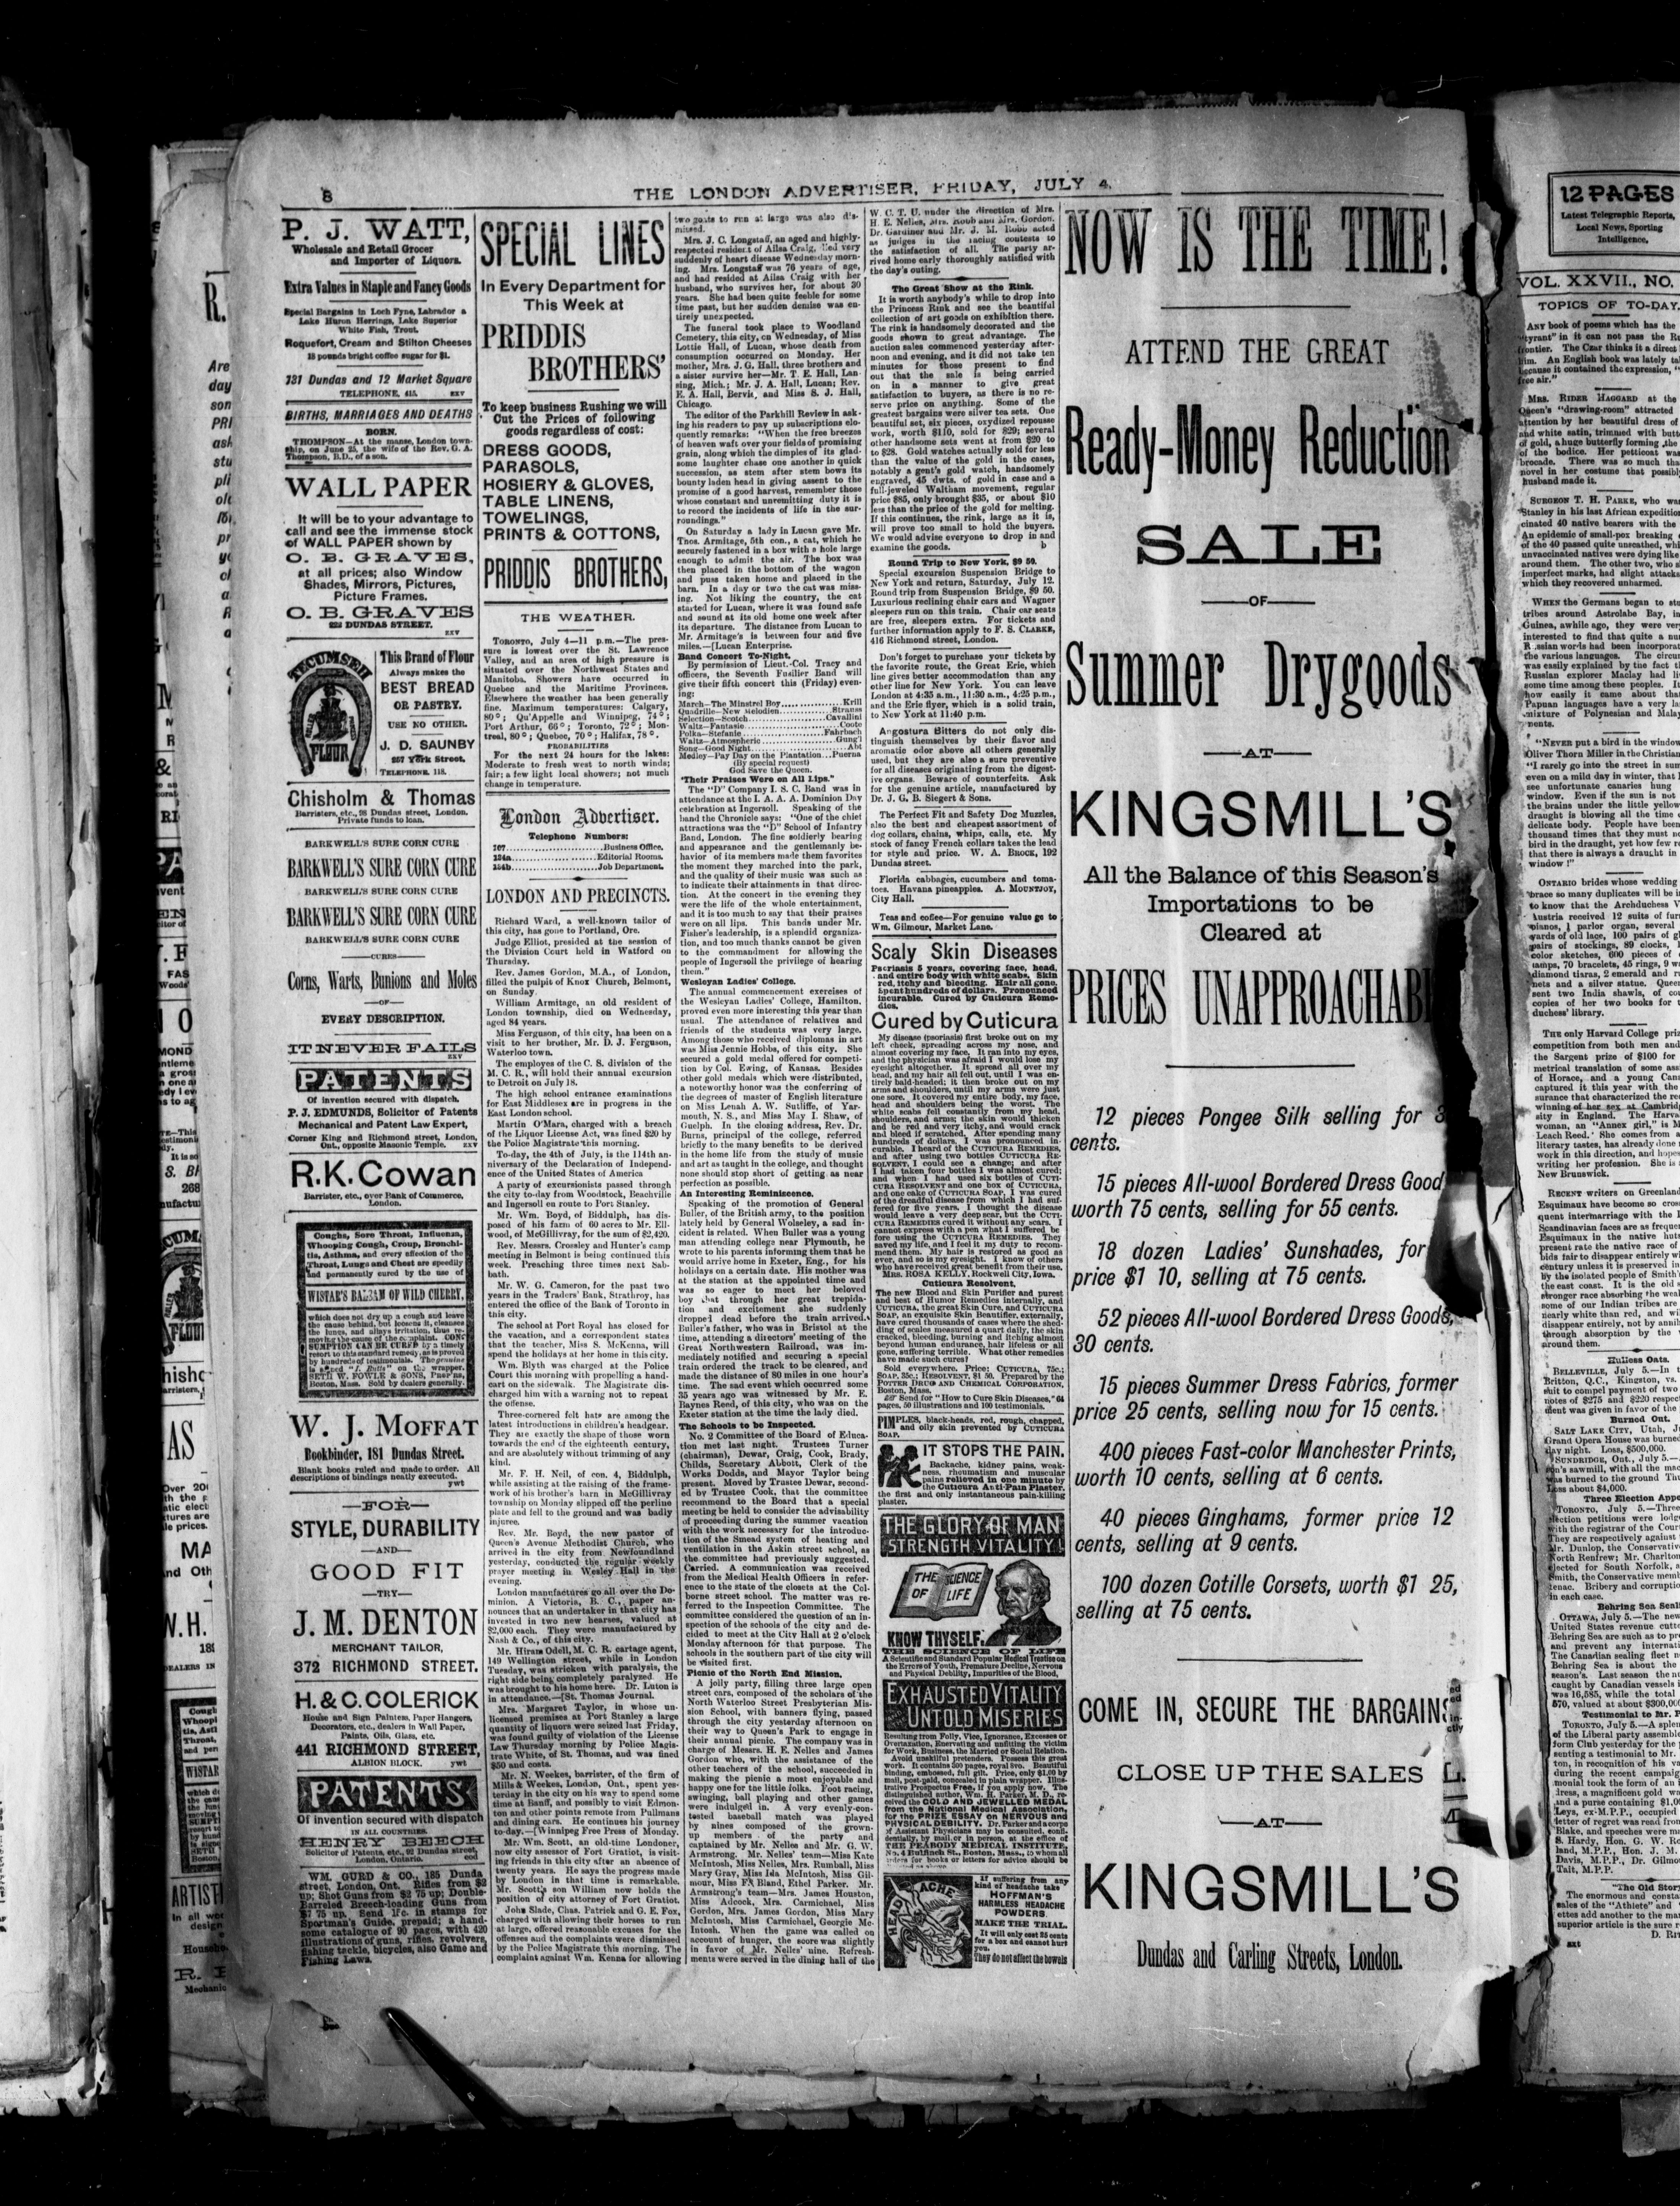 8
THE LONDON ADVERTISER, FRIDAY, JULY 4.
P. J. WATT,
Wholesale and Retail Grocer
and Importer of Liquors.
Extra Values in Staple and Fancy Goods
Special Bargains in Loch Fyne, Labrador &
Lake Huron Herrings, Lake Superior
White Fish, Trout.
Roquefort, Cream and Stilton Cheeses
18 pounds bright coffee sugar for $1.
131 Dundas and 12 Market Square
TELEPHONE, 415. xxv
BIRTHS, MARRIAGES AND DEATHS
BORN.
THOMPSON—At the manse, London town-
ship, on June 25, the wife of the Rev. G. A.
Thompson, B.D., of a son.
WALL PAPER
It will be to your advantage to
call and see the immense stock
of WALL PAPER shown by
O. B. GRAVES,
at all prices; also Window
Shades, Mirrors, Pictures,
Picture Frames.
O. B. GRAVES
222 DUNDAS STREET.
xxv
TECUMSEH
FLOUR
This Brand of Flour
Always makes the
BEST BREAD
OR PASTRY.
USE NO OTHER.
J. D. SAUNBY
257 York Street.
TELEPHONE 118.
Chisholm & Thomas
Barristers, etc., 98 Dundas street, London.
Private funds to loan.
BARKWELL'S SURE CORN CURE
BARKWELL'S SURE CORN CURE
BARKWELL'S SURE CORN CURE
BARKWELL'S SURE CORN CURE
BARKWELL'S SURE CORN CURE
—CURES—
Corns, Warts, Bunions and Moles
—OF—
EVERY DESCRIPTION.
IT NEVER FAILS
xxv
PATENTS
Of invention secured with dispatch.
P. J. EDMUNDS, Solicitor of Patents
Mechanical and Patent Law Expert,
Corner King and Richmond street, London,
Ont., opposite Masonic Temple. xxv
R.K. Cowan
Barrister, etc., over Bank of Commerce,
London.
Coughs, Sore Throat, Influenza,
Whooping Cough, Croup, Bronchi-
tis, Asthma, and every affection of the
Throat, Lungs and Chest are speedily
and permanently cured by the use of
WISTAR'S BALSAM OF WILD CHERRY,
which does not dry up a cough and leave
the cause behind, but loosens it, cleanses
the lungs, and allays irritation, thus re-
moving the cause of the complaint. CON-
SUMPTION CAN BE CURED by a timely
resort to this standard remedy, as is proved
by hundreds of testimonials. The genuine
is signed "I. Butts" on the wrapper.
SETH W. FOWLE & SONS, Prop'rs,
Boston, Mass. Sold by dealers generally.
W. J. MOFFAT
Bookbinder, 181 Dundas Street.
Blank books ruled and made to order. All
descriptions of bindings neatly executed.
ywt
—FOR—
STYLE, DURABILITY
—AND—
GOOD FIT
—TRY—
J. M. DENTON
MERCHANT TAILOR,
372 RICHMOND STREET.
H. & C. COLERICK
House and Sign Painters, Paper Hangers,
Decorators, etc., dealers in Wall Paper,
Paints, Oils, Glass, etc.
441 RICHMOND STREET,
ALBION BLOCK. ywt
PATENTS
Of invention secured with dispatch
IN ALL COUNTRIES.
HENRY BEECH
Solicitor of Patents, etc., 92 Dundas street,
London, Ontario. eod
WM. GURD & CO., 185 Dundas
street, London, Ont. Rifles from $2
up; Shot Guns from $2 75 up; Double-
Barreled Breech-loading Guns from
$7 75 up. Send 1c. in stamps for
Sportman's Guide, prepaid; a hand-
some catalogue of 90 pages, with 420
illustrations of guns, rifles, revolvers,
fishing tackle, bicycles, also Game and
Fishing Laws.
SPECIAL LINES
In Every Department for
This Week at
PRIDDIS
BROTHERS'
To keep business Rushing we will
Cut the Prices of following
goods regardless of cost:
DRESS GOODS,
PARASOLS,
HOSIERY & GLOVES,
TABLE LINENS,
TOWELINGS,
PRINTS & COTTONS,
PRIDDIS BROTHERS,
THE WEATHER.
TORONTO, July 4—11 p.m.—The pres-
sure is lowest over the St. Lawrence
Valley, and an area of high pressure is
situated over the Northwest States and
Manitoba. Showers have occurred in
Quebec and the Maritime Provinces.
Elsewhere the weather has been generally
fine. Maximum temperatures: Calgary,
80°; Qu'Appelle and Winnipeg, 74°;
Port Arthur, 66°; Toronto, 72°; Mon-
treal, 80°; Quebec, 70°; Halifax, 78°.
PROBABILITIES
For the next 24 hours for the lakes:
Moderate to fresh west to north winds;
fair; a few light local showers; not much
change in temperature.
London Advertiser.
Telephone Numbers:
107............Business Office.
134a............Editorial Rooms.
134b............Job Department.
LONDON AND PRECINCTS.
Richard Ward, a well-known tailor of
this city, has gone to Portland, Ore.
Judge Elliot, presided at the session of
the Division Court held in Watford on
Thursday.
Rev. James Gordon, M.A., of London,
filled the pulpit of Knox Church, Belmont,
on Sunday.
William Armitage, an old resident of
London township, died on Wednesday,
aged 84 years.
Miss Ferguson, of this city, has been on a
visit to her brother, Mr. D. J. Ferguson,
Waterloo town.
The employes of the C. S. division of the
M. C. R., will hold their annual excursion
to Detroit on July 18.
The high school entrance examinations
for East Middlesex are in progress in the
East London school.
Martin O'Mara, charged with a breach
of the Liquor License Act, was fined $20 by
the Police Magistrate this morning.
To-day, the 4th of July, is the 114th an-
niversary of the Declaration of Independ-
ence of the United States of America
A party of excursionists passed through
the city to-day from Woodstock, Beachville
and Ingersoll en route to Port Stanley.
Mr. Wm. Boyd, of Biddulph, has dis-
posed of his farm of 60 acres to Mr. Ell-
wood, of McGillivray, for the sum of $2,420.
Rev. Messrs. Crossley and Hunter's camp
meeting in Belmont is being continued this
week. Preaching three times next Sab-
bath.
Mr. W. G. Cameron, for the past two
years in the Traders' Bank, Strathroy, has
entered the office of the Bank of Toronto in
this city.
The school at Port Royal has closed for
the vacation, and a correspondent states
that the teacher, Miss S. McKenna, will
spend the holidays at her home in this city.
Wm. Blyth was charged at the Police
Court this morning with propelling a hand-
cart on the sidewalk. The Magistrate dis-
charged him with a warning not to repeat
the offense.
Three-cornered felt hats are among the
latest introductions in children's headgear.
They are exactly the shape of those worn
towards the end of the eighteenth century,
and are absolutely without trimming of any
kind.
Mr. F. H. Neil, of con. 4, Biddulph,
while assisting at the raising of the frame-
work of his brother's barn in McGillivray
township on Monday slipped off the perline
plate and fell to the ground and was badly
injured.
Rev. Mr. Boyd, the new pastor of
Queen's Avenue Methodist Church, who
arrived in the city from Newfoundland
yesterday, conducted the regular weekly
prayer meeting in Wesley Hall in the
evening.
London manufactures go all over the Do-
minion. A Victoria, B. C., paper an-
nounces that an undertaker in that city has
invested in two new hearses, valued at
$2,000 each. They were manufactured by
Nash & Co., of this city.
Mr. Hiram Odell, M. C. R. cartage agent,
149 Wellington street, while in London
Tuesday, was stricken with paralysis, the
right side being completely paralyzed. He
was brought to his home here. Dr. Luton is
in attendance.—[St. Thomas Journal.
Mrs. Margaret Taylor, in whose un-
licensed premises at Port Stanley a large
quantity of liquors were seized last Friday,
was found guilty of violation of the License
Law Thursday morning by Police Magis-
trate White, of St. Thomas, and was fined
$50 and costs.
Mr. N. Weekes, barrister, of the firm of
Mills & Weekes, London, Ont., spent yes-
terday in the city on his way to spend some
time at Banff, and possibly to visit Edmon-
ton and other points remote from Pullmans
and dining cars. He continues his journey
to-day.—[Winnipeg Free Press of Monday.
Mr. Wm. Scott, an old-time Londoner,
now city assessor of Fort Gratiot, is visit-
ing friends in this city after an absence of
twenty years. He says the progress made
by London in that time is remarkable.
Mr. Scott's son William now holds the
position of city attorney of Fort Gratiot.
John Slade, Chas. Patrick and G. E. Fox,
charged with allowing their horses to run
at large, offered reasonable excuses for the
offenses and the complaints were dismissed
by the Police Magistrate this morning. The
complaint against Wm. Kenna for allowing
two goats to run at large was also dis-
missed.
Mrs. J. C. Longstaff, an aged and highly-
respected resident of Ailsa Craig, died very
suddenly of heart disease Wednesday morn-
ing. Mrs. Longstaff was 76 years of age,
and had resided at Ailsa Craig with her
husband, who survives her, for about 30
years. She had been quite feeble for some
time past, but her sudden demise was en-
tirely unexpected.
The funeral took place to Woodland
Cemetery, this city, on Wednesday, of Miss
Lottie Hall, of Lucan, whose death from
consumption occurred on Monday. Her
mother, Mrs. J. G. Hall, three brothers and
a sister survive her—Mr. T. E. Hall, Lan-
sing, Mich.; Mr. J. A. Hall, Lucan; Rev.
E. A. Hall, Bervie, and Miss S. J. Hall,
Chicago.
The editor of the Parkhill Review in ask-
ing his readers to pay up subscriptions elo-
quently remarks: "When the free breezes
of heaven waft over your fields of promising
grain, along which the dimples of its glad-
some laughter chase one another in quick
succession, as stem after stem bows its
bounty laden head in giving assent to the
promise of a good harvest, remember those
whose constant and unremitting duty it is
to record the incidents of life in the sur-
roundings."
On Saturday a lady in Lucan gave Mr.
Thos. Armitage, 5th con., a cat, which he
securely fastened in a box with a hole large
enough to admit the air. The box was
then placed in the bottom of the wagon
and puss taken home and placed in the
barn. In a day or two the cat was miss-
ing. Not liking the country, the cat
started for Lucan, where it was found safe
and sound at its old home one week after
its departure. The distance from Lucan to
Mr. Armitage's is between four and five
miles.—[Lucan Enterprise.
Band Concert To-Night.
By permission of Lieut.-Col. Tracy and
officers, the Seventh Fusilier Band will
give their fifth concert this (Friday) even-
ing:
March—The Minstrel Boy............Krill
Quadrille—New Melodien............Strauss
Selection—Scotch............Cavallini
Waltz—Fantasie............Coote
Polka—Stefanie............Fahrbach
Waltz—Atmospheric............Gung'l
Song—Good Night............Abt
Medley—Pay Day on the Plantation...Puerna
(By special request)
God Save the Queen.
"Their Praises Were on All Lips."
The "D" Company I. S. C. Band was in
attendance at the I. A. A. A. Dominion Day
celebration at Ingersoll. Speaking of the
band the Chronicle says: "One of the chief
attractions was the "D" School of Infantry
Band, London. The fine soldierly bearing
and appearance and the gentlemanly be-
havior of its members made them favorites
the moment they marched into the park,
and the quality of their music was such as
to indicate their attainments in that direc-
tion. At the concert in the evening they
were the life of the whole entertainment,
and it is too much to say that their praises
were on all lips. This bands under Mr.
Fisher's leadership, is a splendid organiza-
tion, and too much thanks cannot be given
to the commandment for allowing the
people of Ingersoll the privilege of hearing
them."
Wesleyan Ladies' College.
The annual commencement exercises of
the Wesleyan Ladies' College, Hamilton,
proved even more interesting this year than
usual. The attendance of relatives and
friends of the students was very large.
Among those who received diplomas in art
was Miss Jennie Hobbs, of this city. She
secured a gold medal offered for competi-
tion by Col. Ewing, of Kansas. Besides
other gold medals which were distributed,
a noteworthy honor was the conferring of
the degrees of master of English literature
on Miss Lenah A. W. Sutliffe, of Yar-
mouth, N. S., and Miss May I. Shaw, of
Guelph. In the closing address, Rev. Dr.
Burns, principal of the college, referred
briefly to the many benefits to be derived
in the home life from the study of music
and art as taught in the college, and thought
none should stop short of getting as near
perfection as possible.
An Interesting Reminiscence.
Speaking of the promotion of General
Buller, of the British army, to the position
lately held by General Wolseley, a sad in-
cident is related. When Buller was a young
man attending college near Plymouth, he
wrote to his parents informing them that he
would arrive home in Exeter, Eng., for his
holidays on a certain date. His mother was
at the station at the appointed time and
was so eager to meet her beloved
boy that through her great trepida-
tion and excitement she suddenly
dropped dead before the train arrived.
Buller's father, who was in Bristol at the
time, attending a directors' meeting of the
Great Northwestern Railroad, was im-
mediately notified and securing a special
train ordered the track to be cleared, and
made the distance of 80 miles in one hour's
time. The sad event which occurred some
35 years ago was witnessed by Mr. E.
Baynes Reed, of this city, who was on the
Exeter station at the time the lady died.
The Schools to be Inspected.
No. 2 Committee of the Board of Educa-
tion met last night. Trustees Turner
(chairman), Dewar, Craig, Cook, Brady,
Childs, Secretary Abbott, Clerk of the
Works Dodds, and Mayor Taylor being
present. Moved by Trustee Dewar, second-
ed by Trustee Cook, that the committee
recommend to the Board that a special
meeting be held to consider the advisability
of proceeding during the summer vacation
with the work necessary for the introduc-
tion of the Smead system of heating and
ventilation in the Askin street school, as
the committee had previously suggested.
Carried. A communication was received
from the Medical Health Officers in refer-
ence to the state of the closets at the Col-
borne street school. The matter was re-
ferred to the Inspection Committee. The
committee considered the question of an in-
spection of the schools of the city and de-
cided to meet at the City Hall at 2 o'clock
Monday afternoon for that purpose. The
schools in the southern part of the city will
be visited first.
Picnic of the North End Mission.
A jolly party, filling three large open
street cars, composed of the scholars of the
North Waterloo Street Presbyterian Mis-
sion School, with banners flying, passed
through the city yesterday afternoon on
their way to Queen's Park to engage in
their annual picnic. The company was in
charge of Messrs. H. E. Nelles and James
Gordon who, with the assistance of the
other teachers of the school, succeeded in
making the picnic a most enjoyable and
happy one for the little folks. Foot racing,
swinging, ball playing and other games
were indulged in. A very evenly-con-
tested baseball match was played
by nines composed of the grown-
up members of the party and
captained by Mr. Nelles and Mr. G. W.
Armstrong. Mr. Nelles' team—Miss Kate
McIntosh, Miss Nelles, Mrs. Rumball, Miss
Mary Gray, Miss Ida McIntosh, Miss Gil-
mour, Miss F. Bland, Ethel Parker. Mr.
Armstrong's team—Mrs. James Houston,
Miss Adcock, Mrs. Carmichael, Miss
Gordon, Mrs. James Gordon, Miss Mary
McIntosh, Miss Carmichael, Georgie Mc-
Intosh. When the game was called on
account of hunger, the score was slightly
in favor of Mr. Nelles' nine. Refresh-
ments were served in the dining hall of the
W. C. T. U. under the direction of Mrs.
H. E. Nelles, Mrs. Robb and Mrs. Gordon.
Dr. Gardiner and Mr. J. M. Robb acted
as judges in the racing contests to
the satisfaction of all. The party ar-
rived home early thoroughly satisfied with
the day's outing.
The Great Show at the Rink.
It is worth anybody's while to drop into
the Princess Rink and see the beautiful
collection of art goods on exhibition there.
The rink is handsomely decorated and the
goods shown to great advantage. The
auction sales commenced yesterday after-
noon and evening, and it did not take ten
minutes for those present to find
out that the sale is being carried
on in a manner to give great
satisfaction to buyers, as there is no re-
serve price on anything. Some of the
greatest bargains were silver tea sets. One
beautiful set, six pieces, oxydized repousse
work, worth $110, sold for $29; several
other handsome sets went at from $20 to
to $28. Gold watches actually sold for less
than the value of the gold in the cases,
notably a gent's gold watch, handsomely
engraved, 45 dwts. of gold in case and a
full-jeweled Waltham movement, regular
price $85, only brought $35, or about $10
less than the price of the gold for melting.
If this continues, the rink, large as it is,
will prove too small to hold the buyers.
We would advise everyone to drop in and
examine the goods. b
Round Trip to New York, $9 50.
Special excursion Suspension Bridge to
New York and return, Saturday, July 12.
Round trip from Suspension Bridge, $9 50.
Luxurious reclining chair cars and Wagner
sleepers run on this train. Chair car seats
are free, sleepers extra. For tickets and
further information apply to F. S. CLARKE,
416 Richmond street, London.
Don't forget to purchase your tickets by
the favorite route, the Great Erie, which
line gives better accommodation than any
other line for New York. You can leave
London at 4:35 a.m., 11:30 a.m., 4:25 p.m.,
and the Erie flyer, which is a solid train,
to New York at 11:40 p.m.
Angostura Bitters do not only dis-
tinguish themselves by their flavor and
aromatic odor above all others generally
used, but they are also a sure preventive
for all diseases originating from the digest-
ive organs. Beware of counterfeits. Ask
for the genuine article, manufactured by
Dr. J. G. B. Siegert & Sons.
The Perfect Fit and Safety Dog Muzzles,
also the best and cheapest assortment of
dog collars, chains, whips, calls, etc. My
stock of fancy French collars takes the lead
for style and price. W. A. BROCK, 192
Dundas street.
Florida cabbages, cucumbers and toma-
toes. Havana pineapples. A. MOUNTJOY,
City Hall.
Teas and coffee—For genuine value go to
Wm. Gilmour, Market Lane.
Scaly Skin Diseases
Psoriasis 5 years, covering face, head,
and entire body with white scabs. Skin
red, itchy and bleeding. Hair all gone.
Spent hundreds of dollars. Pronounced
incurable. Cured by Cuticura Reme-
dies.
Cured by Cuticura
My disease (psoriasis) first broke out on my
left cheek, spreading across my nose, and
almost covering my face. It ran into my eyes,
and the physician was afraid I would lose my
eyesight altogether. It spread all over my
head, and my hair all fell out, until I was en-
tirely bald-headed; it then broke out on my
arms and shoulders, until my arms were just
one sore. It covered my entire body, my face,
head and shoulders being the worst. The
white scabs fell constantly from my head,
shoulders, and arms; the skin would thicken
and be red and very itchy, and would crack
and bleed if scratched. After spending many
hundreds of dollars, I was pronounced in-
curable. I heard of the CUTICURA REMEDIES,
and after using two bottles CUTICURA RE-
SOLVENT, I could see a change; and after
I had taken four bottles I was almost cured;
and when I had used six bottles of CUTI-
CURA RESOLVENT and one box of CUTICURA,
and one cake of CUTICURA SOAP, I was cured
of the dreadful disease from which I had suf-
fered for five years. I thought the disease
would leave a very deep scar, but the CUTI-
CURA REMEDIES cured it without any scars. I
cannot express with a pen what I suffered be-
fore using the CUTICURA REMEDIES. They
saved my life, and I feel it my duty to recom-
mend them. My hair is restored as good as
ever, and so is my eyesight. I know of others
who have received great benefit from their use.
MRS. ROSA KELLY, Rockwell City, Iowa.
Cuticura Resolvent,
The new Blood and Skin Purifier and purest
and best of Humor Remedies internally, and
CUTICURA, the great Skin Cure, and CUTICURA
SOAP, an exquisite Skin Beautifier, externally,
have cured thousands of cases where the shed-
ding of scales measured a quart daily, the skin
cracked, bleeding, burning and itching almost
beyond human endurance, hair lifeless or all
gone, suffering terrible. What other remedies
have made such cures?
Sold everywhere. Price: CUTICURA, 75c.;
SOAP, 35c.; RESOLVENT, $1 50. Prepared by the
POTTER DRUG AND CHEMICAL CORPORATION,
Boston, Mass.
Send for "How to Cure Skin Diseases," 64
pages, 50 illustrations and 100 testimonials.
PIMPLES, black-heads, red, rough, chapped,
and oily skin prevented by CUTICURA
SOAP.
IT STOPS THE PAIN.
Backache, kidney pains, weak-
ness, rheumatism and muscular
pains relieved in one minute by
the Cuticura Anti-Pain Plaster,
the first and only instantaneous pain-killing
plaster.
THE GLORY OF MAN
STRENGTH. VITALITY!
THE SCIENCE OF LIFE
KNOW THYSELF.
THE SCIENCE OF LIFE
A Scientific and Standard Popular Medical Treatise on
the Errors of Youth, Premature Decline, Nervous
and Physical Debility, Impurities of the Blood,
EXHAUSTED VITALITY
UNTOLD MISERIES
Resulting from Folly, Vice, Ignorance, Excesses or
Overtaxation, Enervating and unfitting the victim
for Work, Business, the Married or Social Relation.
Avoid unskilful pretenders. Possess this great
work. It contains 300 pages, royal 8vo. Beautiful
binding, embossed, full gilt. Price, only $1.00 by
mail, post-paid, concealed in plain wrapper. Illus-
trative Prospectus Free, if you apply now. The
distinguished author, Wm. H. Parker, M. D., re-
ceived the GOLD AND JEWELLED MEDAL
from the National Medical Association,
for the PRIZE ESSAY on NERVOUS and
PHYSICAL DEBILITY. Dr. Parker and a corps
of Assistant Physicians may be consulted, confi-
dentially, by mail or in person, at the office of
THE PEABODY MEDICAL INSTITUTE,
No. 4 Bulfinch St., Boston, Mass., to whom all
orders for books or letters for advice should be
HEAD ACHE
If suffering from any
kind of headache take
HOFFMAN'S
HARMLESS HEADACHE
POWDERS.
MAKE THE TRIAL.
It will only cost 25 cents
for a box and cannot hurt
you.
They do not affect the bowels
NOW IS THE TIME!
ATTEND THE GREAT
Ready-Money Reduction
SALE
—OF—
Summer Drygoods
—AT—
KINGSMILL'S
All the Balance of this Season's
Importations to be
Cleared at
PRICES UNAPPROACHAB
12 pieces Pongee Silk selling for 3
cents.
15 pieces All-wool Bordered Dress Good
worth 75 cents, selling for 55 cents.
18 dozen Ladies' Sunshades, for
price $1 10, selling at 75 cents.
52 pieces All-wool Bordered Dress Goods,
30 cents.
15 pieces Summer Dress Fabrics, former
price 25 cents, selling now for 15 cents.
400 pieces Fast-color Manchester Prints,
worth 10 cents, selling at 6 cents.
40 pieces Ginghams, former price 12
cents, selling at 9 cents.
100 dozen Cotille Corsets, worth $1 25,
selling at 75 cents.
COME IN, SECURE THE BARGAINS
CLOSE UP THE SALES
—AT—
KINGSMILL'S
Dundas and Carling Streets, London.
12 PAGES
Latest Telegraphic Reports,
Local News, Sporting
Intelligence.
VOL. XXVII., NO.
TOPICS OF TO-DAY.